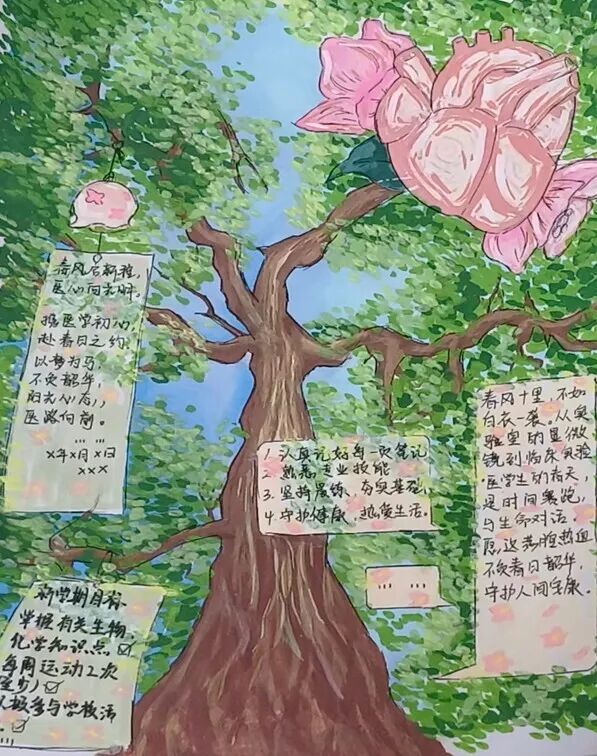 春风启新程，
医心向光时。
揣医学初心
赴春日之约
以梦为马，
不负韶华，
向光而行，
医路向前。
... ...
×年×月×日
×××
1. 认真记好每一页笔记
2. 熟悉专业技能
3. 坚持晨练，夯实基础。
4. 守护健康，热爱生活。
春风十里，不如
白衣一袭。从实
验室的显微
镜到临床实验
，医学生的春天，
是时间赛跑，
与生命对话。
愿这满腔热血
不负春日韶华，
守护人间安康。
... ...
新学期目标
掌握有关生物、
化学知识点。☑
每周运动2次
至少）☑
参与学校活
。☑
...